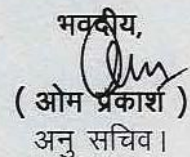 भवदीय,
( ओम प्रकाश )
अनु सचिव।